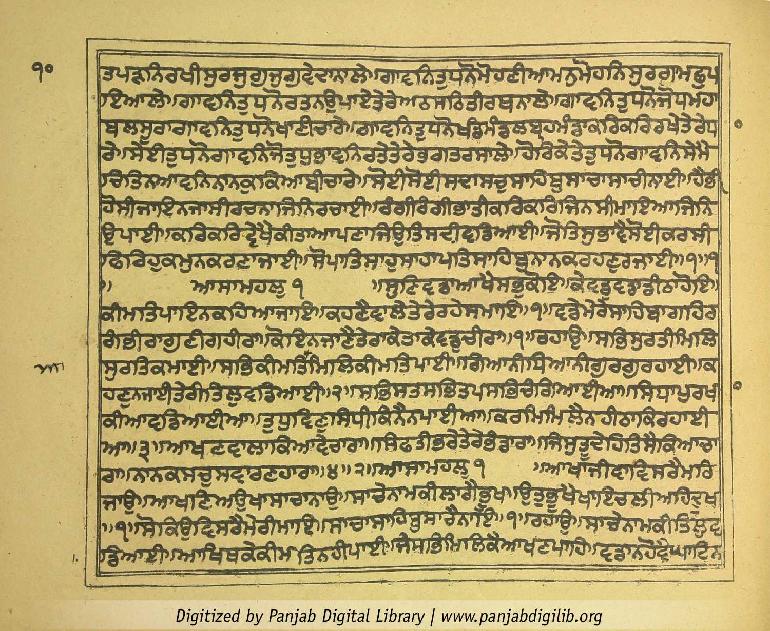 ੧੦
ਤਪੜਨਿਰਖੀਸੁਰਜੁਗੁਜੁਗੁਵੇਦਾਨਾਲੇ॥ਗਾਵਨਿਤੁਧਨੋਮੋਹਣੀਆਮਨੁਮੋਹਨਿਸੁਰਗੁਮਛੁਪ
ਇਆਲੇ॥ਗਾਵਨਿਤੁਧਨੋਰਤਨਉਪਾਏਤੇਰੇਅਠਸਠਿਤੀਰਥਨਾਲੇ॥ਗਾਵਨਿਤੁਧਨੋਜੋਧਮਹਾ
ਬਲਸੂਰਾਗਾਵਨਿਤੁਧਨੋਖਾਣੀਚਾਰੇ॥ਗਾਵਨਿਤੁਧਨੋਖੰਡਮੰਡਲਬ੍ਰਹਮੰਡਾਕਰਿਕਰਿਰਖੇਤੇਰੇਧਾ
ਰੇ॥ਸੇਈਤੁਧਨੋਗਾਵਨਿਜੋਤੁਧੁਭਾਵਨਿਰਤੇਤੇਰੇਭਗਤਰਸਾਲੇ॥ਹੋਰਿਕੇਤੇਤੁਧਨੋਗਾਵਨਿਸੇਮੈ
ਚਿਤਿਨਆਵਨਿਨਾਨਕੁਕਿਆਬੀਚਾਰੇ॥ਸੋਈਸੋਈਸਦਾਸਚੁਸਾਹਿਬੁਸਾਚਾਸਾਚੀਨਾਈ॥ਹੈਭੀ
ਹੋਸੀਜਾਇਨਜਾਸੀਰਚਨਾਜਿਨਿਰਚਾਈ॥ਰੰਗੀਰੰਗੀਭਾਤੀਕਰਿਕਰਿਜਿਨਸੀਮਾਇਆਜਿਨਿ
ਉਪਾਈ॥ਕਰਿਕਰਿਦੇਖੈਕੀਤਾਆਪਣਾਜਿਉਤਿਸਦੀਵਡਿਆਈ॥ਜੋਤਿਸੁਭਾਵੈਸੋਈਕਰਸੀ
ਫਿਰਿਹੁਕਮੁਨਕਰਣਾਜਾਈ॥ਸੋਪਾਤਿਸਾਹੁਸਾਹਾਪਤਿਸਾਹਿਬੁਨਾਨਕਰਹਣੁਰਜਾਈ॥੧॥੧
॥ ਆਸਾਮਹਲੁ ੧ ॥ਸੁਣਿਵਡਾਆਖੈਸਭੁਕੋਇ॥ਕੇਵਡੁਵਡਾਡੀਠਾਹੋਇ॥
ਕੀਮਤਿਪਾਇਨਕਹਿਆਜਾਇ॥ਕਹਣੈਵਾਲੇਤੇਰੇਰਹੇਸਮਾਇ॥੧॥ਵਡੇਮੇਰੇਸਾਹਿਬਾਗਹਿਰ
ਗੰਭੀਰਾਗੁਣੀਗਹੀਰਾ॥ਕੋਇਨਜਾਣੈਤੇਰਾਕੇਤਾਕੇਵਡੁਚੀਰਾ॥੧॥ਰਹਾਉ॥ਸਭਿਸੁਰਤੀਮਿਲਿ
ਸੁਰਤਿਕਮਾਈ॥ਸਭਕੀਮਤਿਮਿਲਿਕੀਮਤਿਪਾਈ॥ਗਿਆਨੀਧਿਆਨੀਗੁਰਗੁਰਹਾਈ॥ਕ
ਹਣੁਨਜਾਈਤੇਰੀਤਿਲੁਵਡਿਆਈ॥੨॥ਸਭਿਸਤਸਭਿਤਪਸਭਿਚੰਗਿਆਈਆ॥ਸਿਧਾਪੁਰਖਾ
ਕੀਆਵਡਿਆਈਆ॥ਤੁਧੁਵਿਣੁਸਿਧੀਕਿਨੈਨਪਾਈਆ॥ਕਰਮਿਮਿਲੈਨਾਹੀਠਾਕਿਰਹਾਈ
ਆ॥੩॥ਆਖਣਵਾਲਾਕਿਆਵੇਚਾਰਾ॥ਸਿਫਤੀਭਰੇਤੇਰੇਭੰਡਾਰਾ॥ਜਿਸੁਤੂਦੇਹਿਤਿਸੈਕਿਆਚਾ
ਰਾ॥ਨਾਨਕਸਚੁਸਵਾਰਣਹਾਰਾ॥੪॥੨॥ਆਸਾਮਹਲੁ ੧ ॥ਆਖਾਜੀਵਾਵਿਸਰੈਮਰਿ
ਜਾਉ॥ਆਖਣਿਅਉਖਾਸਾਚਾਨਾਉ॥ਸਾਚੇਨਾਮਕੀਲਾਗੈਭੂਖ॥ਉਤੁਭੂਖੈਖਾਇਚਲੀਅਹਿਦੂਖ
॥੧॥ਸੋਕਿਉਵਿਸਰੈਮੇਰੀਮਾਇ॥ਸਾਚਾਸਾਹਿਬੁਸਾਚੈਨਾਇ॥੧॥ਰਹਾਉ॥ਸਾਚੇਨਾਮਕੀਤਿਲੁਵ
ਡਿਆਈ॥ਆਖਿਥਕੇਕੀਮਤਿਨਹੀਪਾਈ॥ਜੇਸਭਿਮਿਲਿਕੈਆਖਣਪਾਹਿ॥ਵਡਾਨਹੋਵੈਘਾਟਿਨ
Digitized by Panjab Digital Library | www.panjabdigilib.org